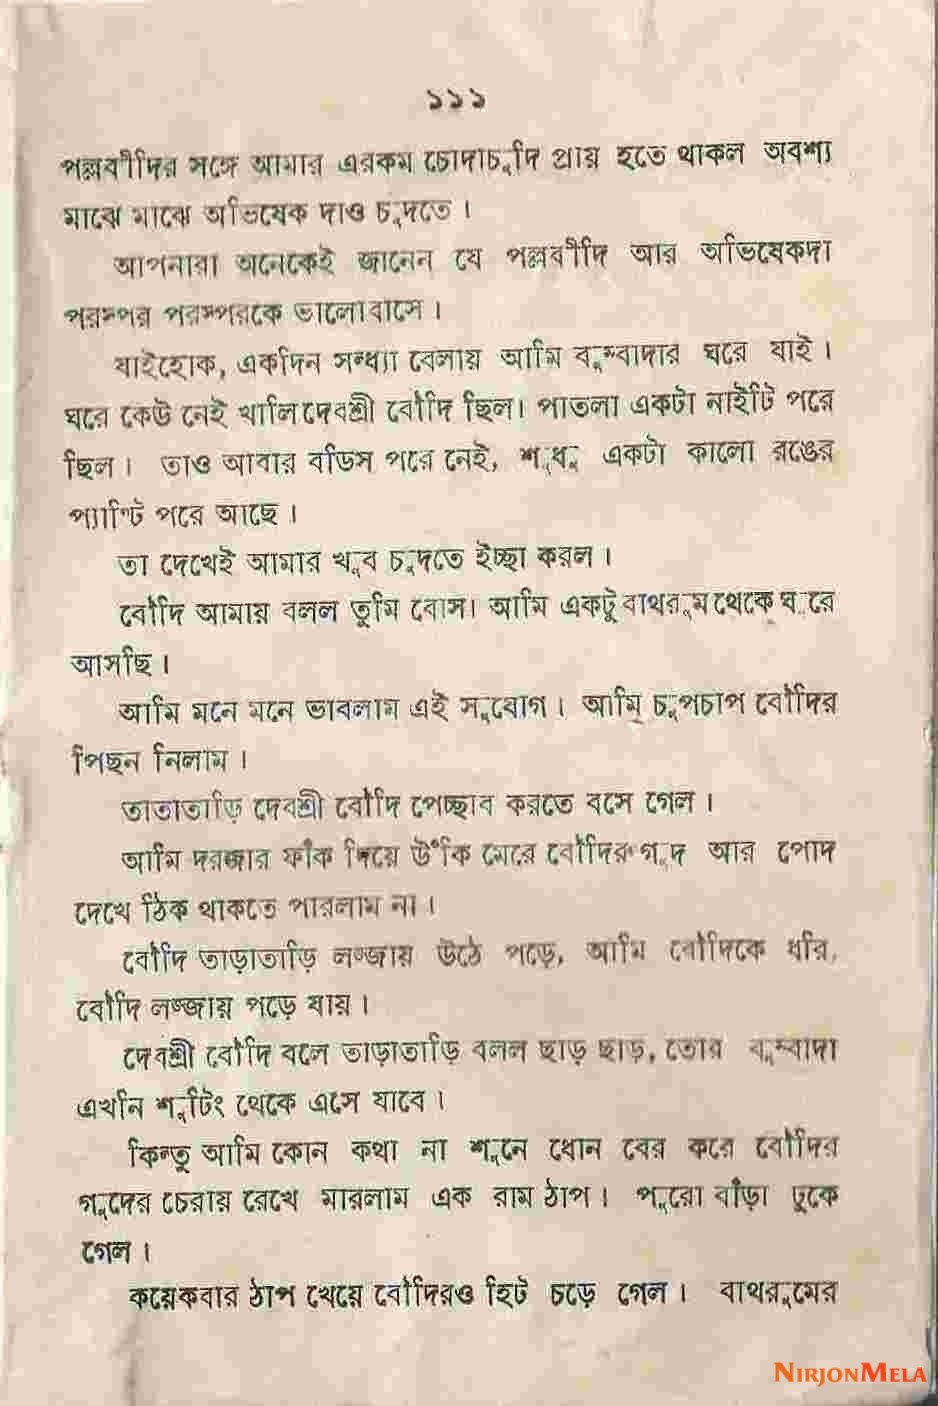 ১১১
পল্লবীদির সঙ্গে আমার এরকম চোদাচুদি প্রায় হতে থাকল অবশ্য
মাঝে মাঝে অভিষেক দাও চুদতে।
আপনারা অনেকেই জানেন যে পল্লবীদি আর অভিষেকদা
পরস্পর পরস্পরকে ভালোবাসে।
যাইহোক, একদিন সন্ধ্যা বেলায় আমি বুম্বাদার ঘরে যাই।
ঘরে কেউ নেই খালি দেবশ্রী বৌদি ছিল। পাতলা একটা নাইটি পরে
ছিল। তাও আবার বডিস পরে নেই, শুধু একটা কালো রঙের
প্যান্টি পরে আছে।
তা দেখেই আমার খুব চুদতে ইচ্ছা করল।
বৌদি আমায় বলল তুমি বোস। আমি একটু বাথরুম থেকে ঘুরে
আসছি।
আমি মনে মনে ভাবলাম এই সুযোগ। আমি চুপচাপ বৌদির
পিছন নিলাম।
তাতাতাড়ি দেবশ্রী বৌদি পেচ্ছাব করতে বসে গেল।
আমি দরজার ফাঁক দিয়ে উঁকি মেরে বৌদির গুদ আর পোদ
দেখে ঠিক থাকতে পারলাম না।
বৌদি তাড়াতাড়ি লজ্জায় উঠে পড়ে, আমি বৌদিকে ধরি,
বৌদি লজ্জায় পড়ে যায়।
দেবশ্রী বৌদি বলে তাড়াতাড়ি বলল ছাড় ছাড়, তোর বুম্বাদা
এখনি শুটিং থেকে এসে যাবে।
কিন্তু আমি কোন কথা না শুনে ধোন বের করে বৌদির
গুদের চেরায় রেখে মারলাম এক রাম ঠাপ। পুরো বাঁড়া ঢুকে
গেল।
কয়েকবার ঠাপ খেয়ে বৌদিরও হিট চড়ে গেল। বাথরুমের
NIRJONMELA